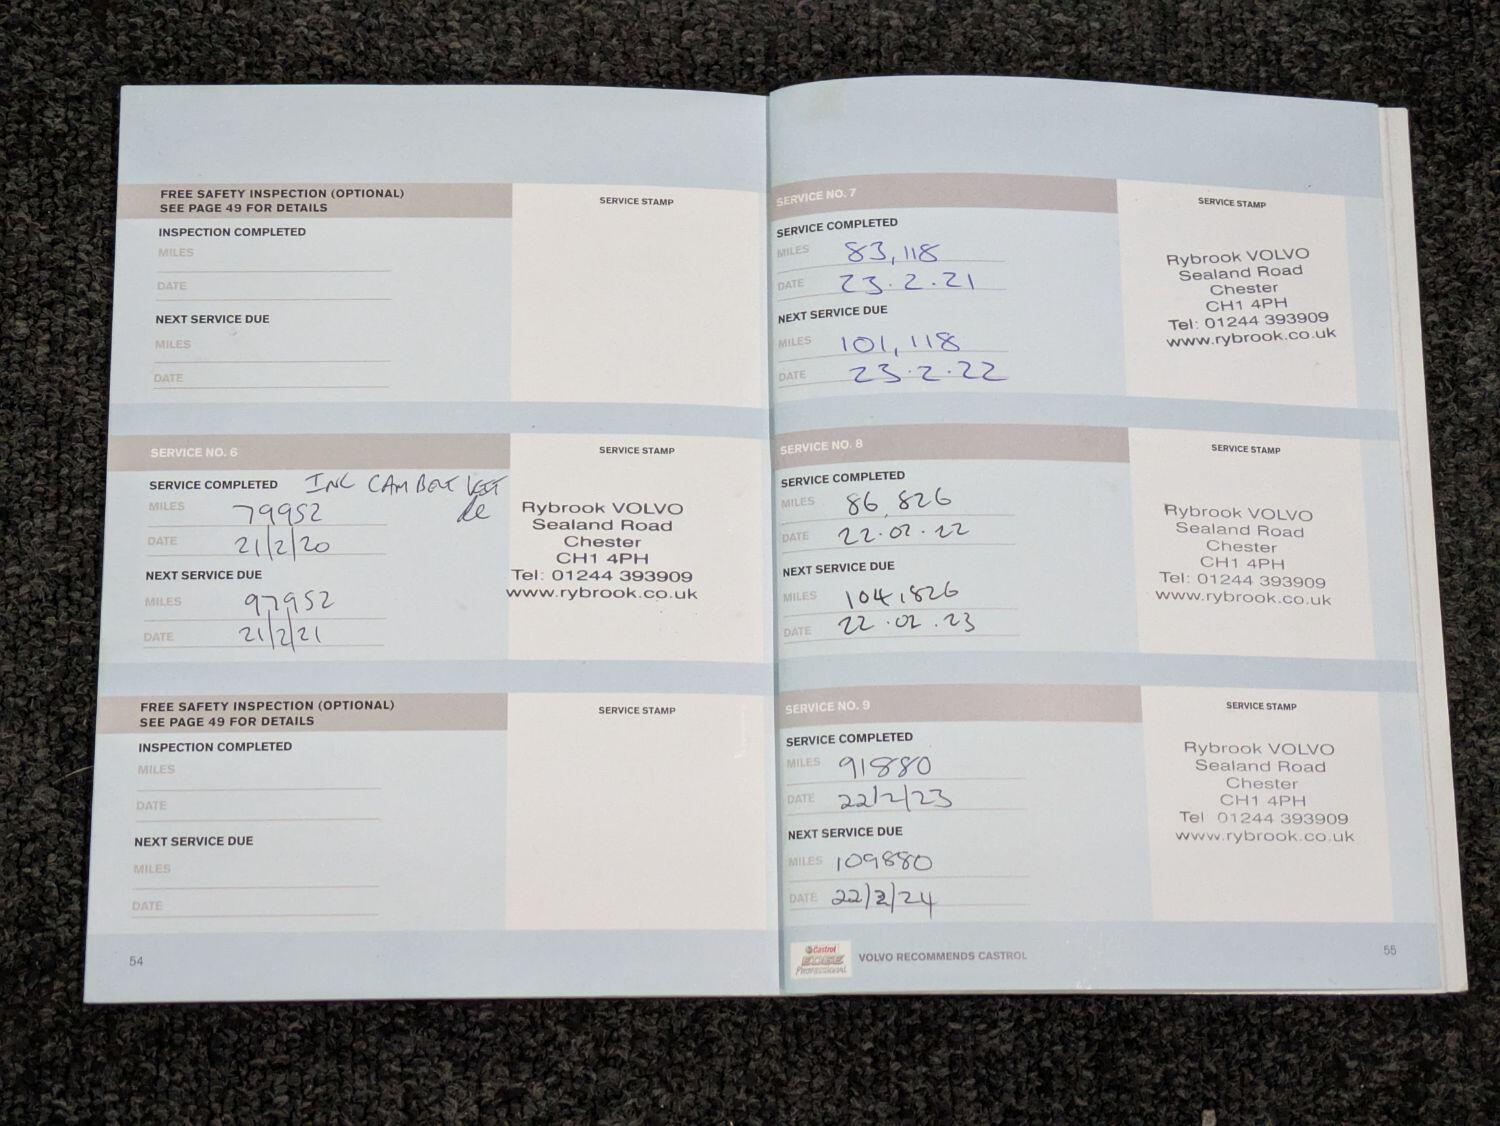 FREE SAFETY INSPECTION (OPTIONAL)
SEE PAGE 49 FOR DETAILS
SERVICE STAMP
INSPECTION COMPLETED
MILES
DATE
NEXT SERVICE DUE
MILES
DATE
SERVICE NO. 6
SERVICE STAMP
SERVICE COMPLETED INC CAM BELT
MILES 79952
DATE 21/2/20
NEXT SERVICE DUE
MILES 97952
DATE 21/2/21
Rybrook VOLVO
Sealand Road
Chester
CH1 4PH
Tel: 01244 393909
www.rybrook.co.uk
FREE SAFETY INSPECTION (OPTIONAL)
SEE PAGE 49 FOR DETAILS
SERVICE STAMP
INSPECTION COMPLETED
MILES
DATE
NEXT SERVICE DUE
MILES
DATE
54
SERVICE NO. 7
SERVICE STAMP
SERVICE COMPLETED
MILES 83,118
DATE 23.2.21
NEXT SERVICE DUE
MILES 101,118
DATE 23.2.22
Rybrook VOLVO
Sealand Road
Chester
CH1 4PH
Tel: 01244 393909
www.rybrook.co.uk
SERVICE NO. 8
SERVICE STAMP
SERVICE COMPLETED
MILES 86,826
DATE 22.02.22
NEXT SERVICE DUE
MILES 104,826
DATE 22.02.23
Rybrook VOLVO
Sealand Road
Chester
CH1 4PH
Tel: 01244 393909
www.rybrook.co.uk
SERVICE NO. 9
SERVICE STAMP
SERVICE COMPLETED
MILES 91880
DATE 22/2/23
NEXT SERVICE DUE
MILES 109880
DATE 22/2/24
Rybrook VOLVO
Sealand Road
Chester
CH1 4PH
Tel 01244 393909
www.rybrook.co.uk
Castrol
EDGE
PROFESSIONAL
VOLVO RECOMMENDS CASTROL
55